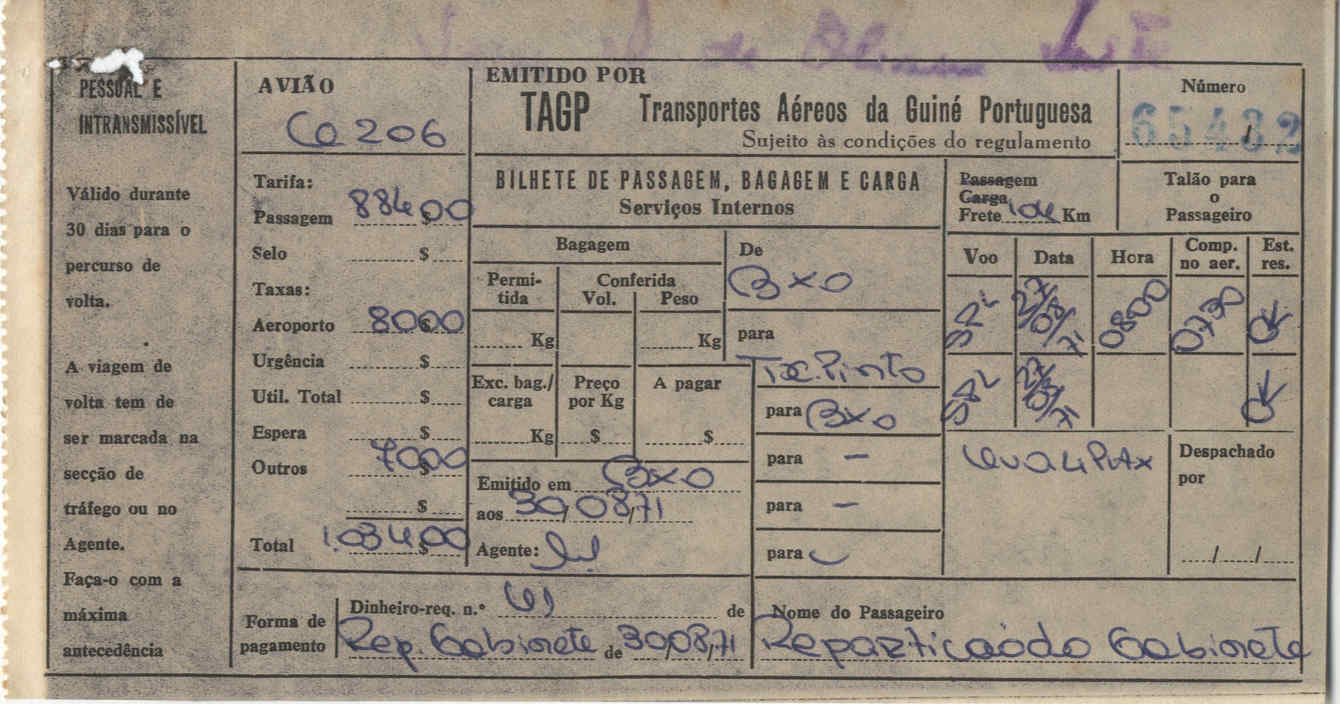 PESSOAL E
INTRANSMISSÍVEL
Válido durante
30 dias para o
percurso de
volta.
A viagem de
volta tem de
ser marcada na
secção de
tráfego ou no
Agente.
Faça-o com a
máxima
antecedência
AVIÃO
CO 206
Tarifa:
Passagem 884$00
Selo $
Taxas:
Aeroporto 80$00
Urgência $
Util. Total $
Espera $
Outros 70$00
$
Total 1.034$00
EMITIDO POR
TAGP Transportes Aéreos da Guiné Portuguesa
Sujeito às condições do regulamento
Número
65432
BILHETE DE PASSAGEM, BAGAGEM E CARGA
Serviços Internos
Passagem
Carga
Frete 104 Km
Talão para
o
Passageiro
Bagagem
Permi-
tida
Conferida
Vol. Peso
Kg Kg
Exc. bag./
carga
Preço
por Kg
A pagar
Kg $ $
Emitido em BXO
aos 30/08/71
Agente:
De
BXO
para
Tx. Pinto
para BXO
para —
para —
para
Voo Data Hora Comp. no aer. Est. res.
27/08/71 0800 0730 OK
27/08/71 OK
Leva 4 Pax
Despachado
por
/ /
Forma de
pagamento
Dinheiro-req. n.º 61 de
Rep. Gabinete de 30/08/71
Nome do Passageiro
Repartição do Gabinete